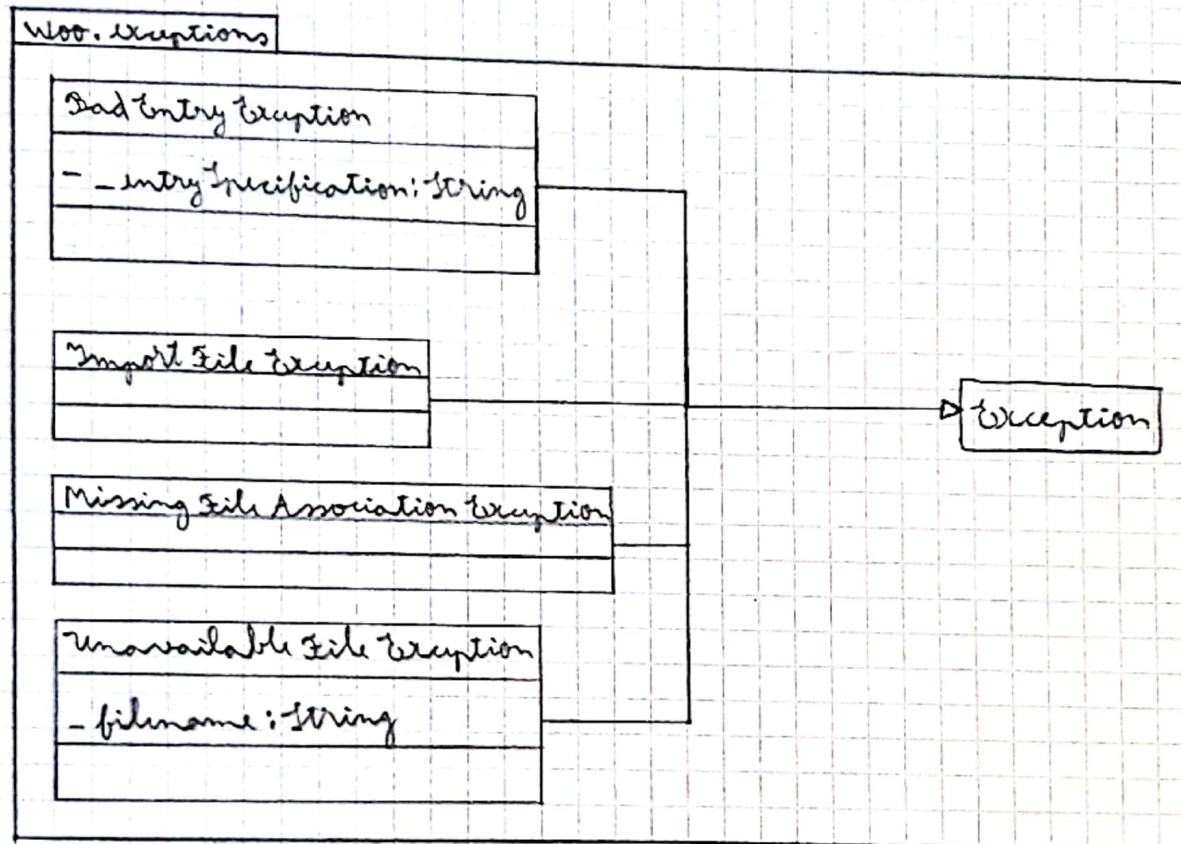 Woo.exceptions
Bad Entry Exception
- _entrySpecification: String
Import File Exception
Exception
Missing File Association Exception
Unavailable File Exception
_ filename: String